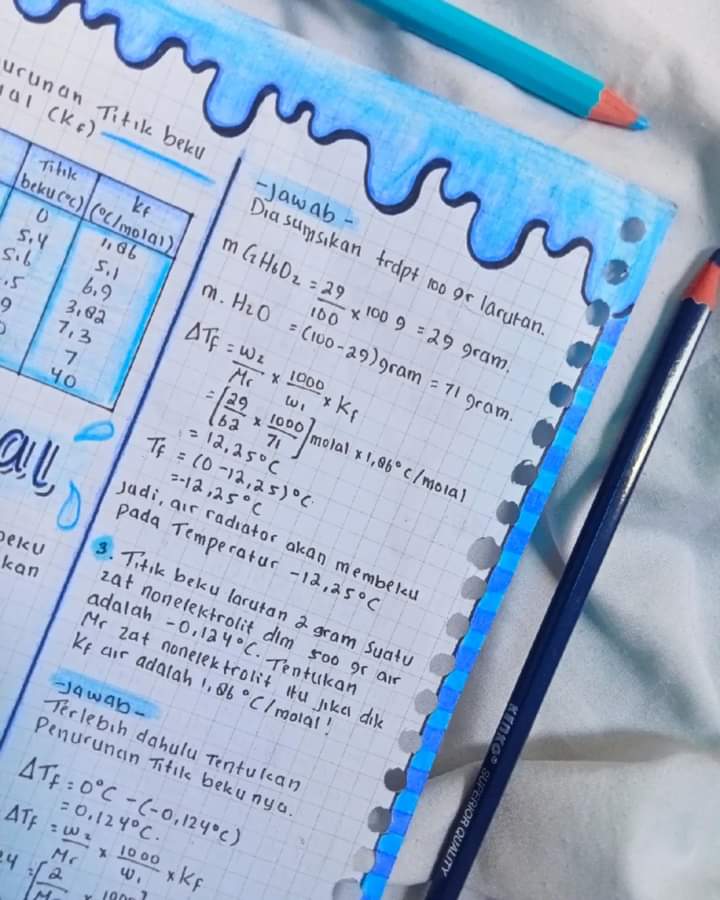 urunan Titik beku
(Kf)
Titik
beku(°c)
Kf
(°c/molal)
0
1,86
5,4
5,1
5,6
6,9
.5
3,82
9
7,3
7
40
al
beku
kan
-Jawab-
Diasumsikan trdpt 100 gr larutan.
m C2H6O2 = 29/100 × 100 g = 29 gram.
m. H2O = (100-29)gram = 71 gram.
ΔTf = W2/Mr × 1000/W1 × Kf
= [29/62 × 1000/71] molal × 1,86°C/molal
= 12,25°C
Tf = (0 -12,25)°C.
= -12,25°C
Jadi, air radiator akan membeku
pada Temperatur -12,25°C
3. Titik beku larutan 2 gram suatu
zat nonelektrolit dlm 500 gr air
adalah -0,124°C. Tentukan
Mr zat nonelektrolit itu jika dik
Kf air adalah 1,86 °C/molal!
-Jawab-
Terlebih dahulu Tentukan
Penurunan Titik beku nya.
ΔTf = 0°C -(-0,124°C)
= 0,124°C.
ΔTf = W2/Mr × 1000/W1 × Kf
24 = [2/Mr ×
KENKO® SUPERIOR QUALITY